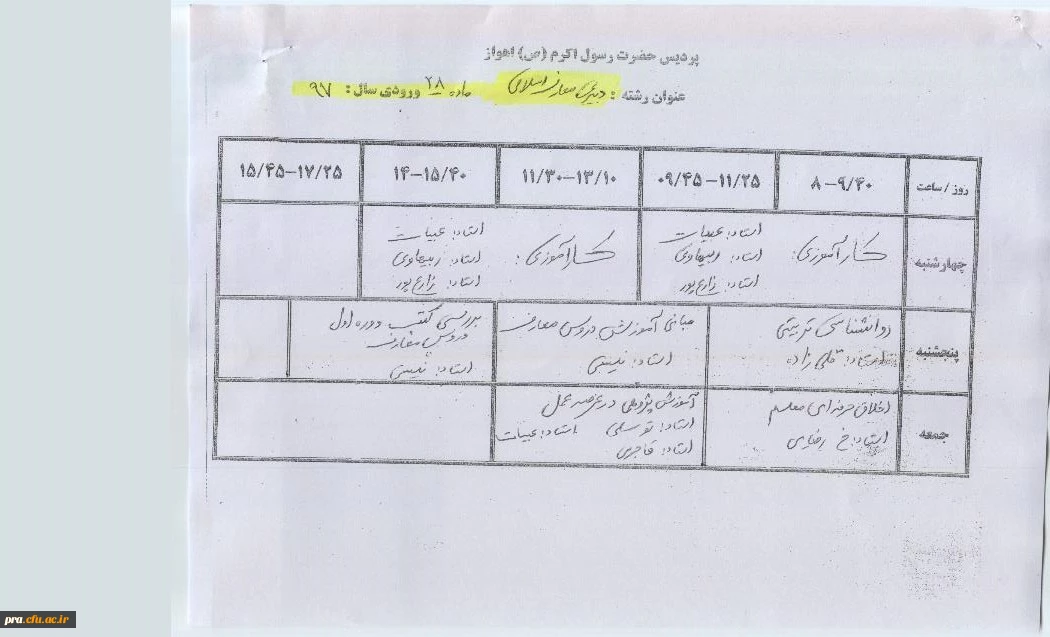 پردیس حضرت رسول اکرم (ص) اهواز
عنوان رشته : دبیری معارف اسلامی ماده ۲۸ ورودی سال : ۹۷
روز / ساعت ۸-۹/۴۰ ۰۹/۴۵-۱۱/۲۵ ۱۱/۳۰-۱۳/۱۰ ۱۴-۱۵/۴۰ ۱۵/۴۵-۱۷/۲۵
چهارشنبه
کارآموزی:
استاد: عبیات
استاد: ربیعاوی
استاد: زارع پور
کارآموزی:
استاد: عبیات
استاد: ربیعاوی
استاد: زارع پور
پنجشنبه
روانشناسی تربیتی
استاد: قلی زاده
مبانی آموزش دروس معارف
استاد: نیسی
بررسی کتب دوره اول
دروس معارف
استاد: نیسی
جمعه
اخلاق حرفه ای معلم
استاد: خ رضایی
آموزش پژوهی در عرصه عمل
استاد: توسلی استاد: عبیات
استاد:
pra.cfu.ac.ir